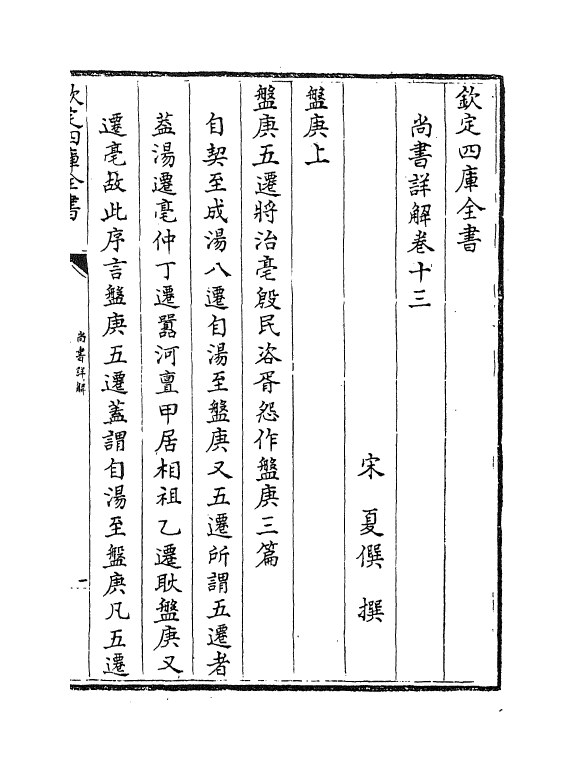 欽定四庫全書
尚書詳解卷十三
宋 夏僎 撰
盤庚上
盤庚五遷將治亳殷民咨胥怨作盤庚三篇
自契至成湯八遷自湯至盤庚又五遷所謂五遷者
葢湯遷亳仲丁遷囂河亶甲居相祖乙遷耿盤庚又
遷亳故此序言盤庚五遷蓋謂自湯至盤庚凡五遷
欽定四庫全書
尚書詳解
一